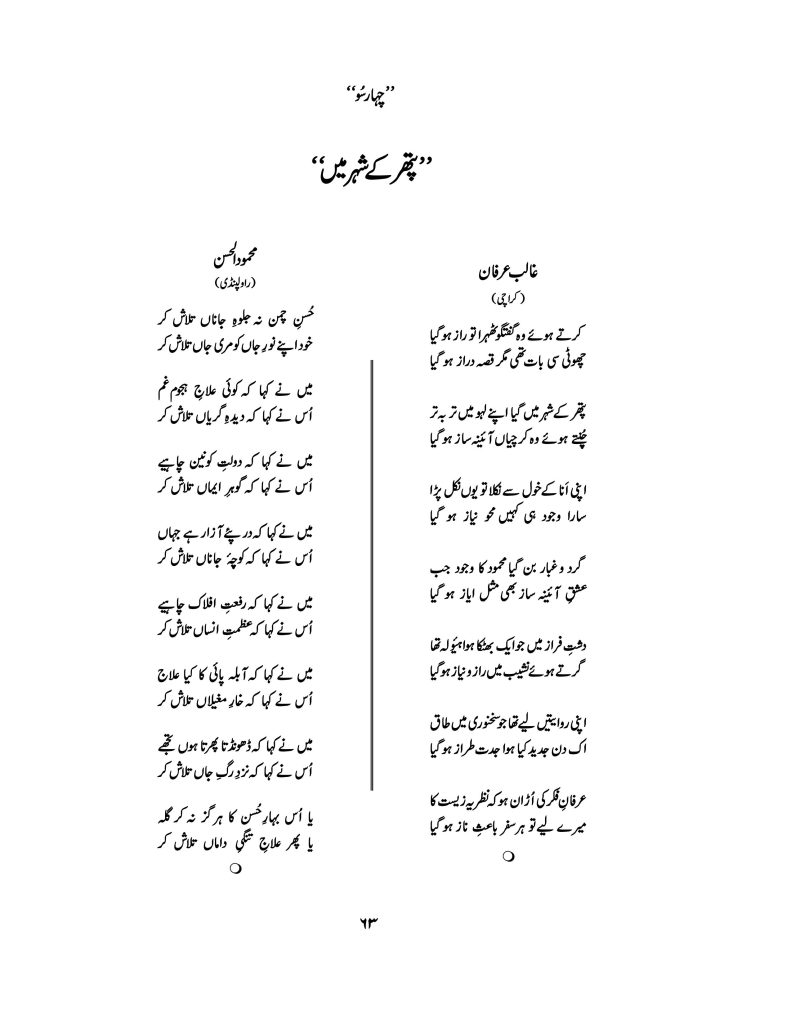 ’’چہارسُو‘‘
’’پتھر کے شہر میں‘‘
غالب عرفان
(کراچی)
کرتے ہوئے وہ گفتگو ٹھہرا تو راز ہو گیا
چھوٹی سی بات تھی مگر قصہ دراز ہو گیا
پتھر کے شہر میں گیا اپنے لہو میں تر بہ تر
چُنتے ہوئے وہ کرچیاں آئینہ ساز ہو گیا
اپنی اَنا کے خول سے نکلا تو یوں نکل پڑا
سارا وجود ہی کہیں محو نیاز ہو گیا
گرد و غبار بن گیا محمود کا وجود جب
عشقِ آئینہ ساز بھی مثل ایاز ہو گیا
دشتِ فراز میں جو ایک بھٹکا ہوا ہیُولہ تھا
گرتے ہوئے نشیب میں راز و نیاز ہو گیا
اپنی روایتیں لیے تھا جو سخنوری میں طاق
اک دن جدید کیا ہوا جدت طراز ہو گیا
عرفانِ فکر کی اُڑان ہو کہ نظریہ زیست کا
میرے لیے تو ہر سفر باعثِ ناز ہو گیا
محمود الحسن
(راولپنڈی)
حُسنِ چمن نہ جلوہِ جاناں تلاش کر
خود اپنے نورِ جاں کو مری جاں تلاش کر
میں نے کہا کہ کوئی علاجِ ہجومِ غم
اُس نے کہا کہ دیدہِ گریاں تلاش کر
میں نے کہا کہ دولتِ کونین چاہیے
اُس نے کہا کہ گوہرِ ایماں تلاش کر
میں نے کہا کہ درپئے آزار ہے جہاں
اُس نے کہا کہ کوچۂ جاناں تلاش کر
میں نے کہا کہ رفعتِ افلاک چاہیے
اُس نے کہا کہ عظمتِ انساں تلاش کر
میں نے کہا کہ آبلہ پائی کا کیا علاج
اُس نے کہا کہ خارِ مغیلاں تلاش کر
میں نے کہا کہ ڈھونڈتا پھرتا ہوں تجھے
اُس نے کہا کہ نزدِ رگِ جاں تلاش کر
یا اُس بہارِ حُسن کا ہرگز نہ کر گلہ
یا پھر علاجِ تنگیِ داماں تلاش کر
۶۳